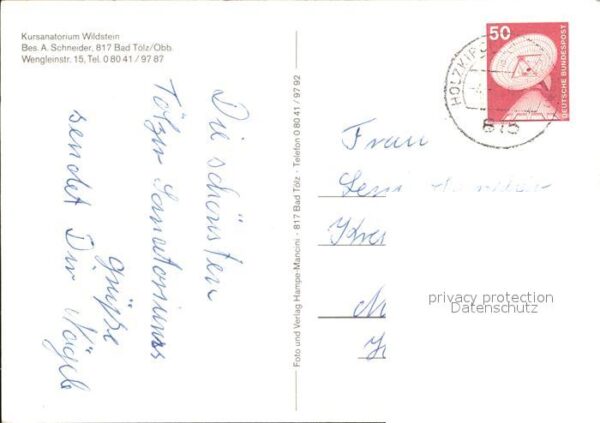 Kursanatorium Wildstein
Bes. A. Schneider, 817 Bad Tölz/Obb.
Wengleinstr. 15, Tel. 0 80 41 / 97 87
Die schönsten
Tölzer Sanatoriums
grüße
sendet Dir
Foto und Verlag Hampe-Mancini · 817 Bad Tölz · Telefon 0 80 41 / 97 92
50
DEUTSCHE BUNDESPOST
HOLZKIRC
815
Frau
privacy protection
Datenschutz